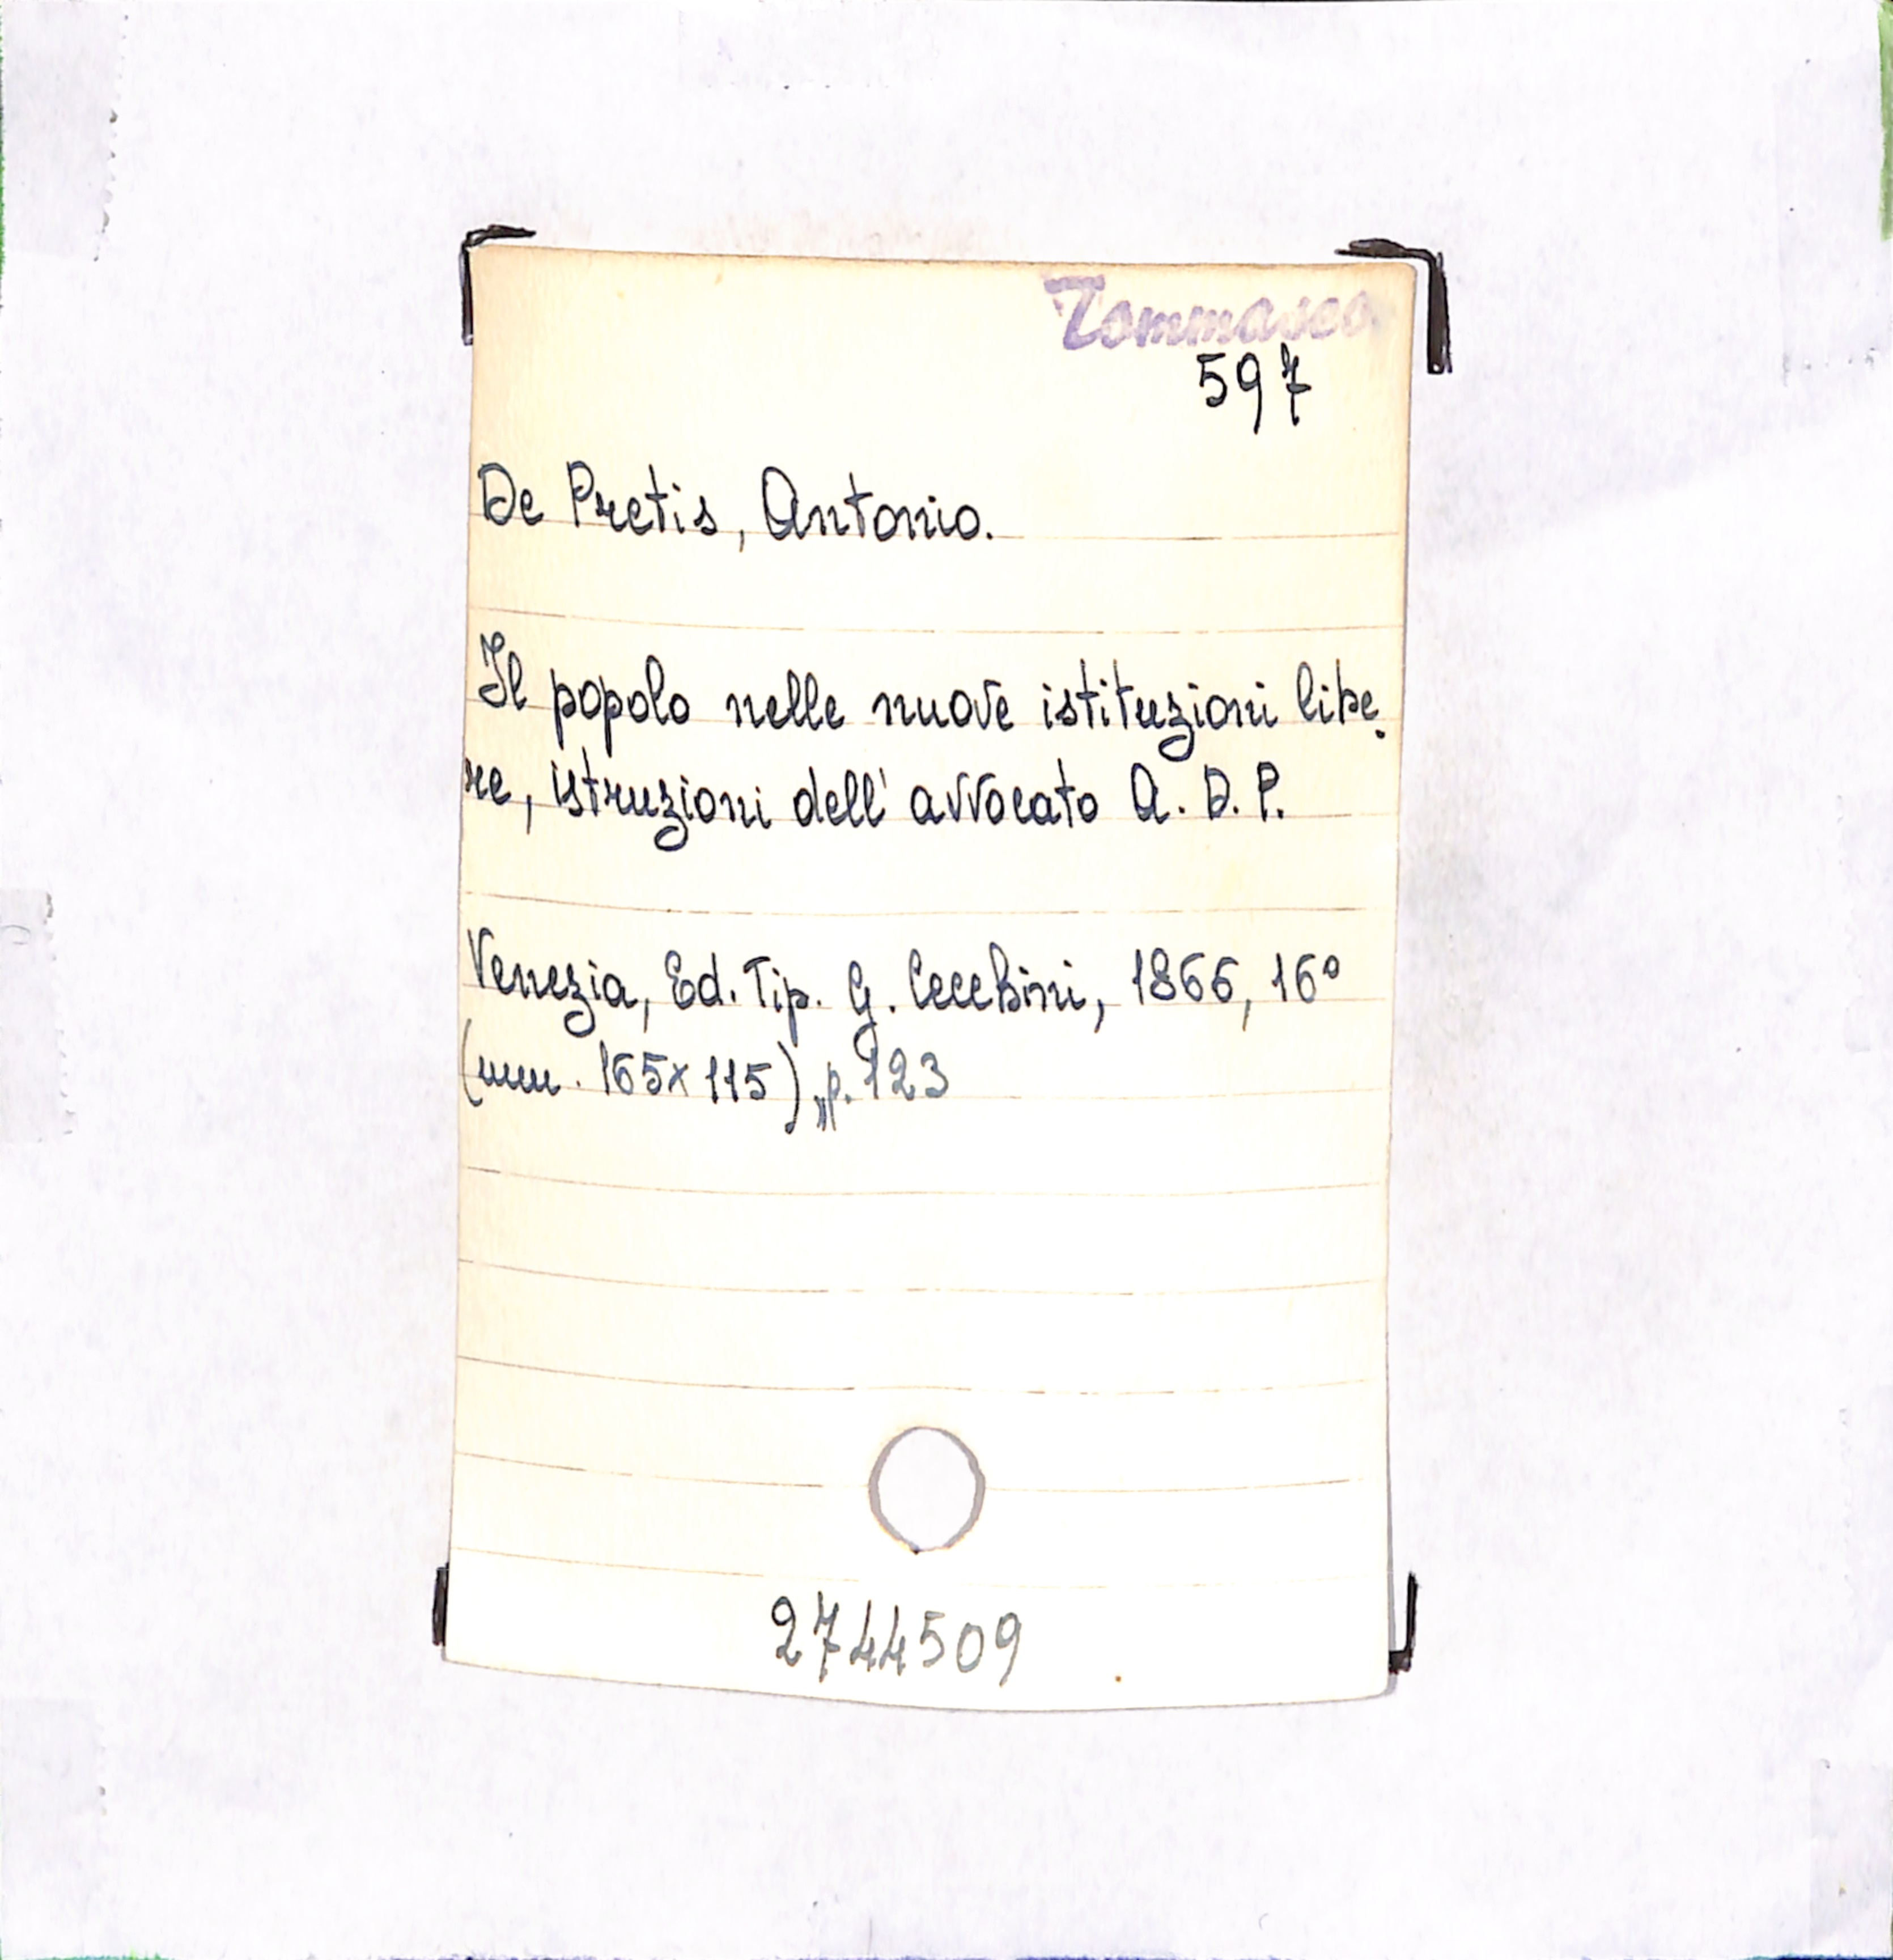 Tommaseo
597
De Pretis, Antonio.
Il popolo nelle nuove istituzioni libe-
re, istruzioni dell'avvocato A. D. P.
Venezia, Ed. Tip. G. Cecchini, 1866, 16°
(mm. 165x115), p. 123
2744509